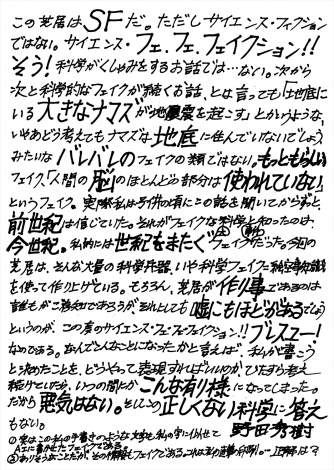 この芝居はSFだ。ただしサイエンス・フィクション
ではない。サイエンス・フェ、フェ、フェイクション!!
そう! 科学がくしゃみをするお話では…ない。次から
次と科学的なフェイクが続く お話、とは言っても「地底に
いる大きなナマズが地震を起こす」とかいうような、
いやあどう考えてもナマズは地底に住んでいないでしょう、
みたいなバレバレのフェイクの類ではない。もっともらしい
フェイク、「人間の脳のほとんどの部分は使われていない」
というフェイク。実際私は子供の頃にこの話を聞いてからずっと、
前世紀は信じていた。それがフェイクな科学と知ったのは、
今世紀。私的には世紀をまたぐフェイクだった。今回の
芝居は、そんな大量の科学兵器、いや科学フェイクと
を使って作り上げている。もちろん、芝居が作り事であるのは
誰もがご承知であろうが、それにしても嘘にもほどがあるでしょう
というのが、この度のサイエンス・フェフェフェイクション!!ブレスユー!
なのである。なんでこんなことになったかと言えば、私が書こう
と決めたことを、どうやって表現すればいいのか、ひたすら考え
続けていたら、いつの間にかこんな有り様になってしまった。
だから悪気はない。そしてこの正しくない科学に答え
もない。
野田秀樹
① 実はこの私の手書きのような文字も私の字に似せて
AIに書かせたフェイクである。
② ありそうなことだが、その情報もフェイクである。これは私の直筆